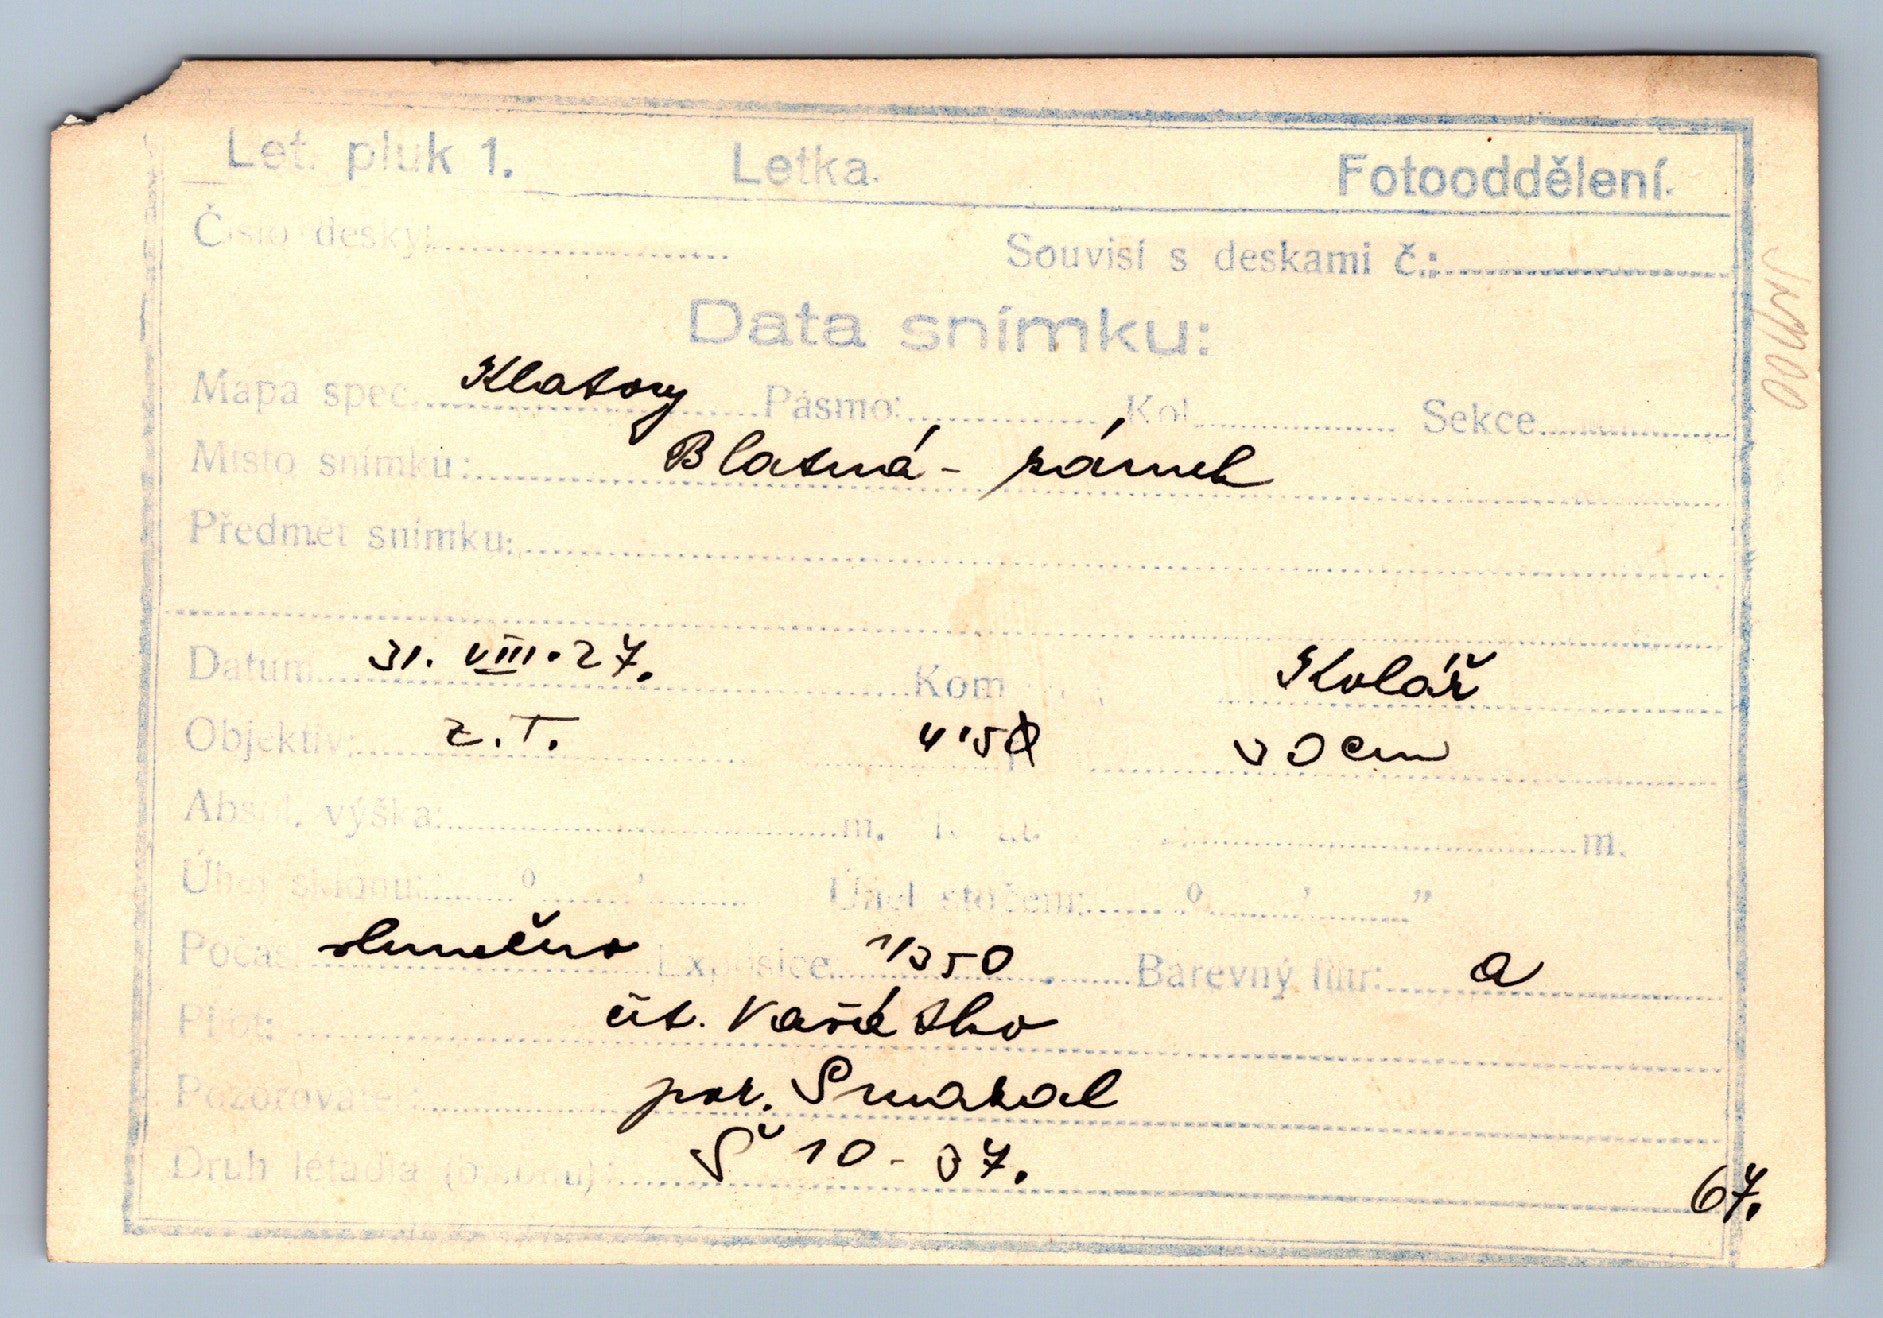 Let. pluk 1. Letka. Fotooddělení.
Číslo desky: Souvisí s deskami č.:
Data snímku:
Mapa spec. Klatovy Pásmo: Kol. Sekce
Místo snímku: Blatná - zámek
Předmět snímku:
Datum 31. VIII. 27. Kom Kolář
Objektiv: Z. T. 4'5 30 cm
Absol. výška: m. m.
Úhel sklonu: ° ' Úhel stočení: ° ' "
Počas. slunečno Exposice 1/350 Barevný filtr: a
Pilot: čet.
Pozorovatel por. Smakal
Druh letadla (balonu): Š 10 - 37.
67.